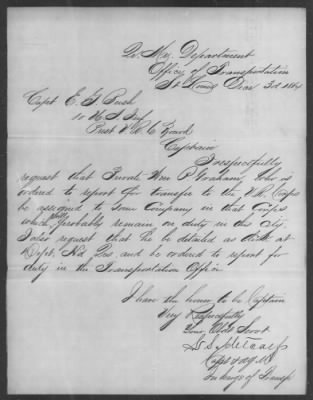 Qr. Mr. Department
Office of Transportation
St Louis Dec 3d 1864
Capt E. G. Bush
10 U S Inf
Prest V. R. C Board
Captain
I respectfully
request that Private Wm P Graham, who is
ordered to report for transfer to the V. R. Corps
be assigned to some Company in that Corps
which will probably remain on duty in this city.
I also request that he be detailed as Clerk at
Dept. Hd Qrs and be ordered to report for
duty in the Transportation Office
I have the honor to be Captain
Very Respectfully
Your Obdt Servt
S. Metcalf
Capt & A Q M
In charge of Transp